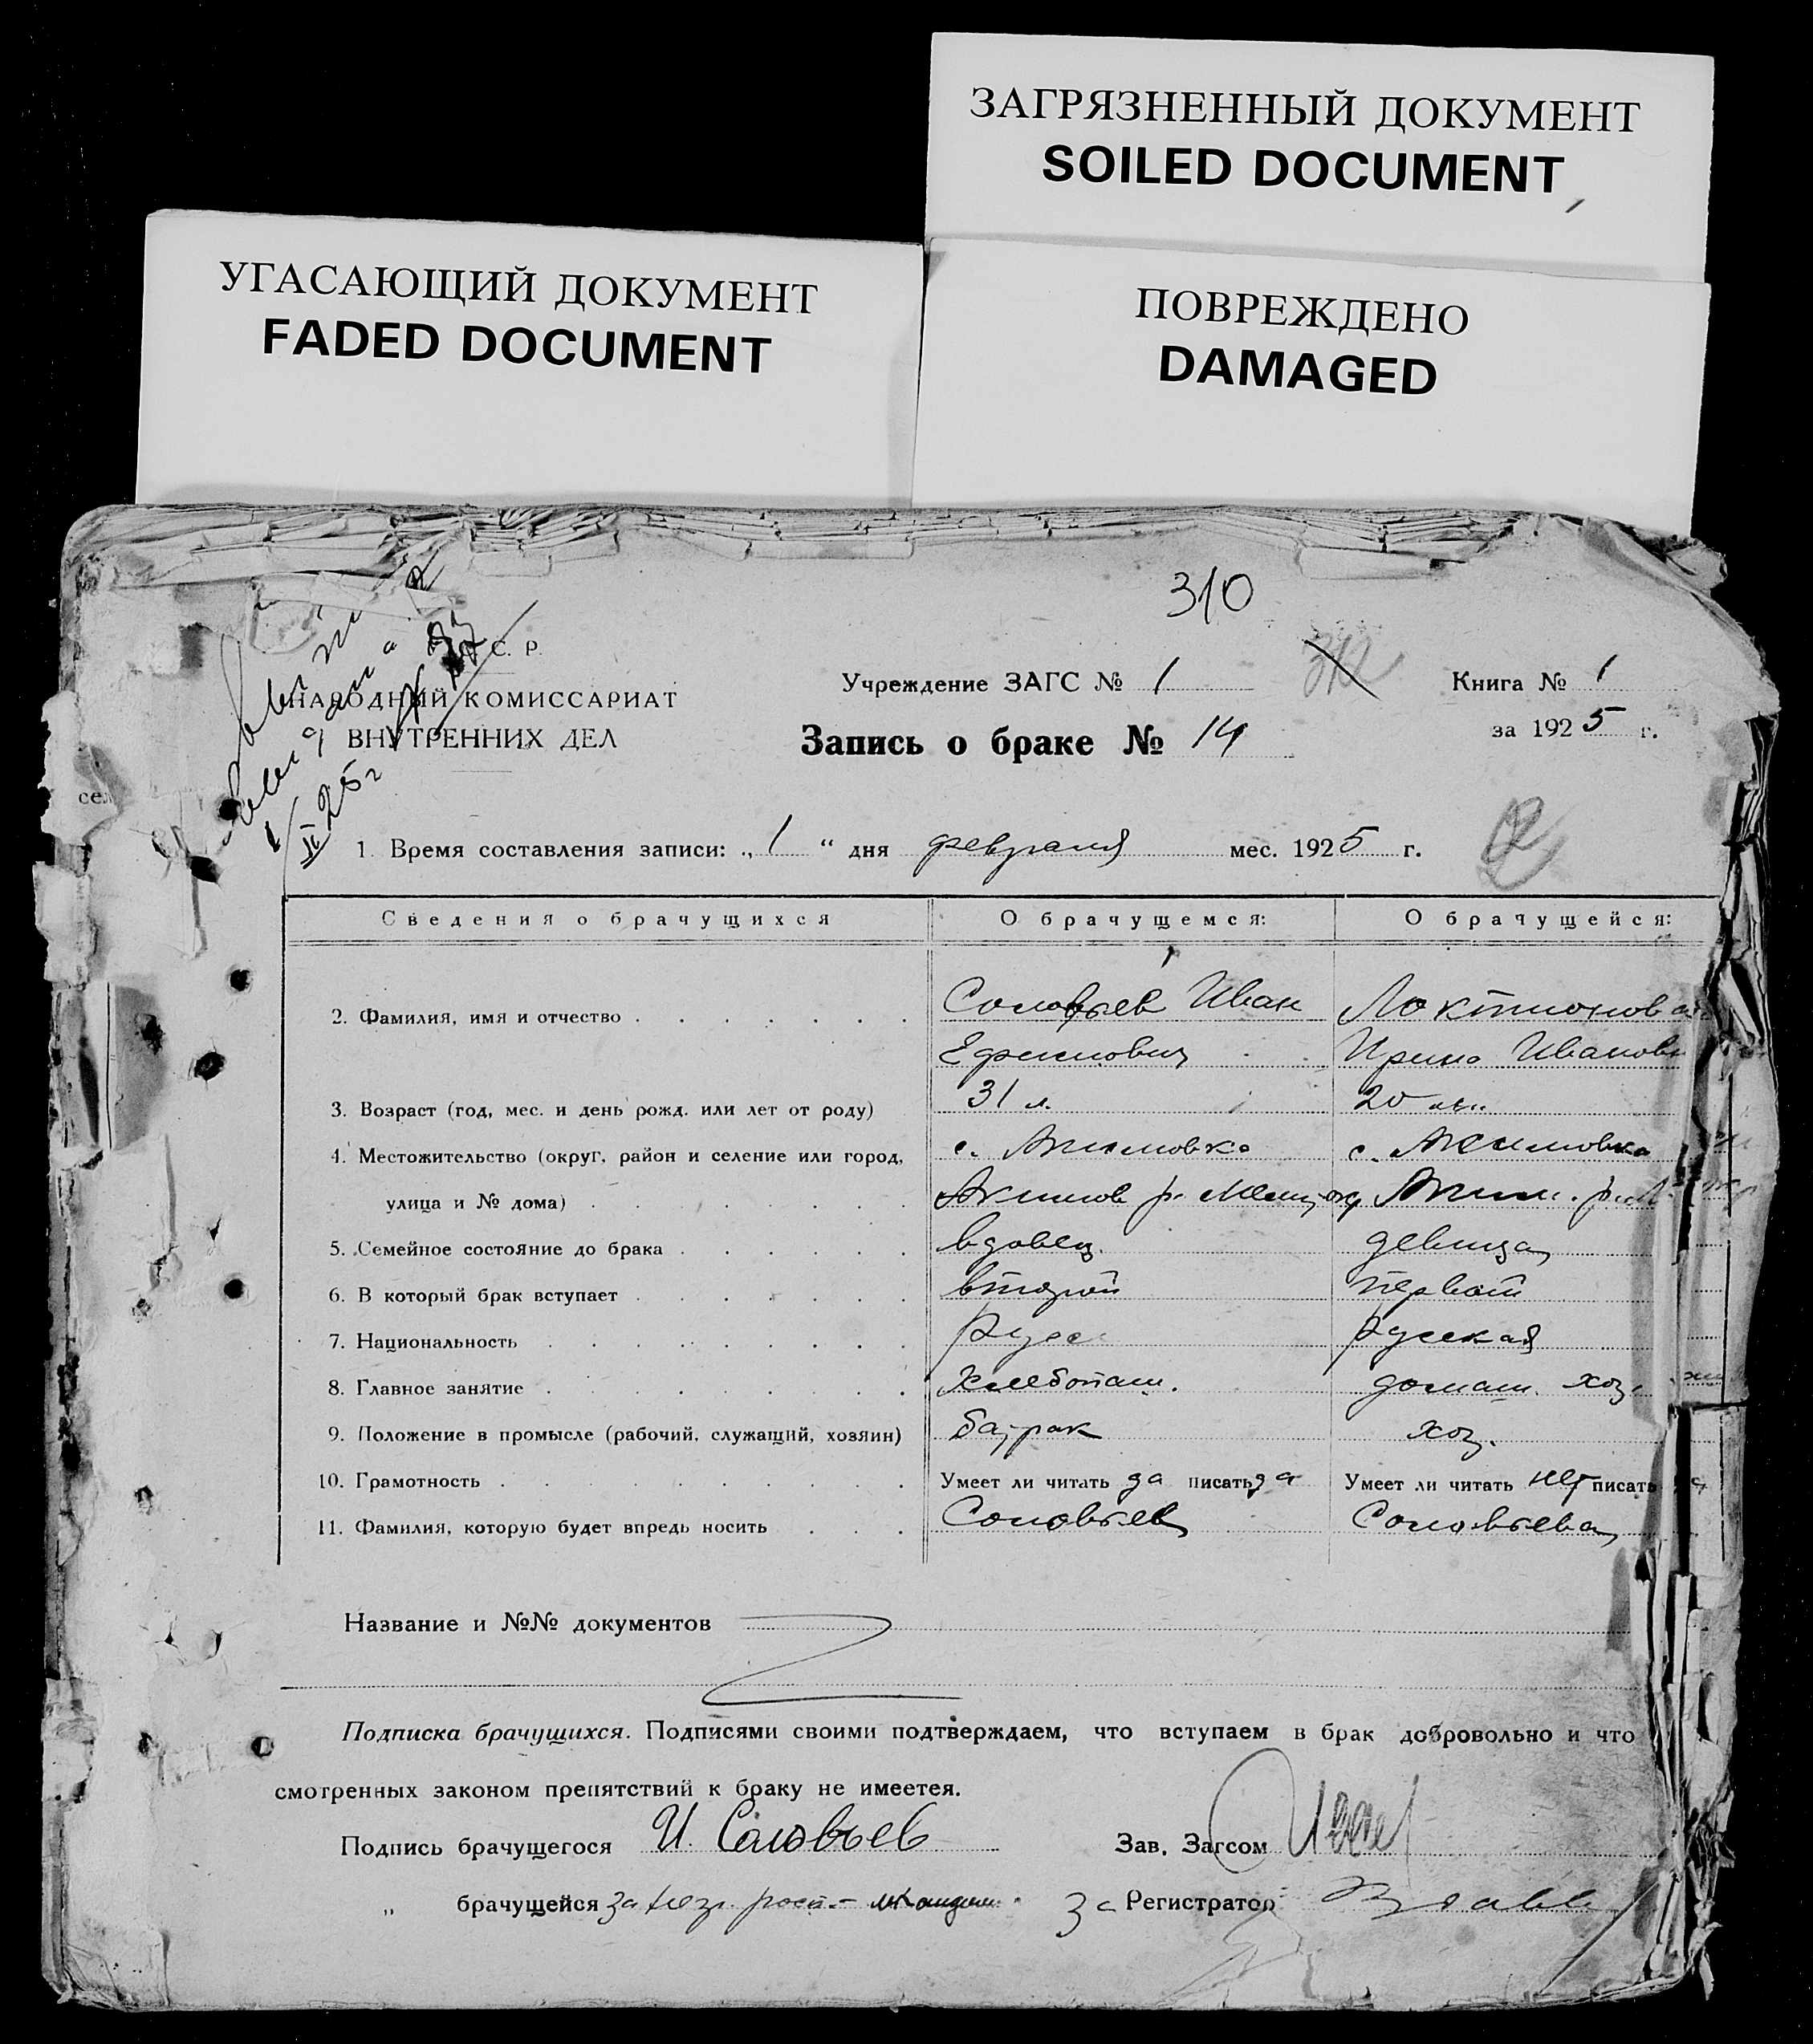 ЗАГРЯЗНЕННЫЙ ДОКУМЕНТ
SOILED DOCUMENT
УГАСАЮЩИЙ ДОКУМЕНТ
FADED DOCUMENT
ПОВРЕЖДЕНО
DAMAGED
310
С. Р.
НАРОДНЫЙ КОМИССАРИАТ
ВНУТРЕННИХ ДЕЛ
Учреждение ЗАГС № 1
312
Книга № 1
за 1925 г.
Запись о браке № 14
1. Время составления записи: „ 1 “ дня февраля мес. 1925 г.
Сведения о брачущихся О брачущемся: О брачущейся:
2. Фамилия, имя и отчество Соловьев Иван Локтионова
Ефимович Ирина Иванов
3. Возраст (год, мес. и день рожд. или лет от роду) 31 л. 20 лет
4. Местожительство (округ, район и селение или город, с. Акимовка с. Акимовка
улица и № дома) Акимов р. Мелит. Аким. р.
5. Семейное состояние до брака вдовец девица
6. В который брак вступает второй первый
7. Национальность русс русская
8. Главное занятие Хлебопаш. домаш. хоз.
9. Положение в промысле (рабочий, служащий, хозяин) батрак хоз.
10. Грамотность Умеет ли читать да писать да Умеет ли читать нет писать
11. Фамилия, которую будет впредь носить Соловьев Соловьева
Название и №№ документов
Подписка брачущихся. Подписями своими подтверждаем, что вступаем в брак добровольно и что
смотренных законом препятствий к браку не имеетея.
Подпись брачущегося И. Соловьев Зав. Загсом
„ брачущейся за негр. росп. За Регистратор